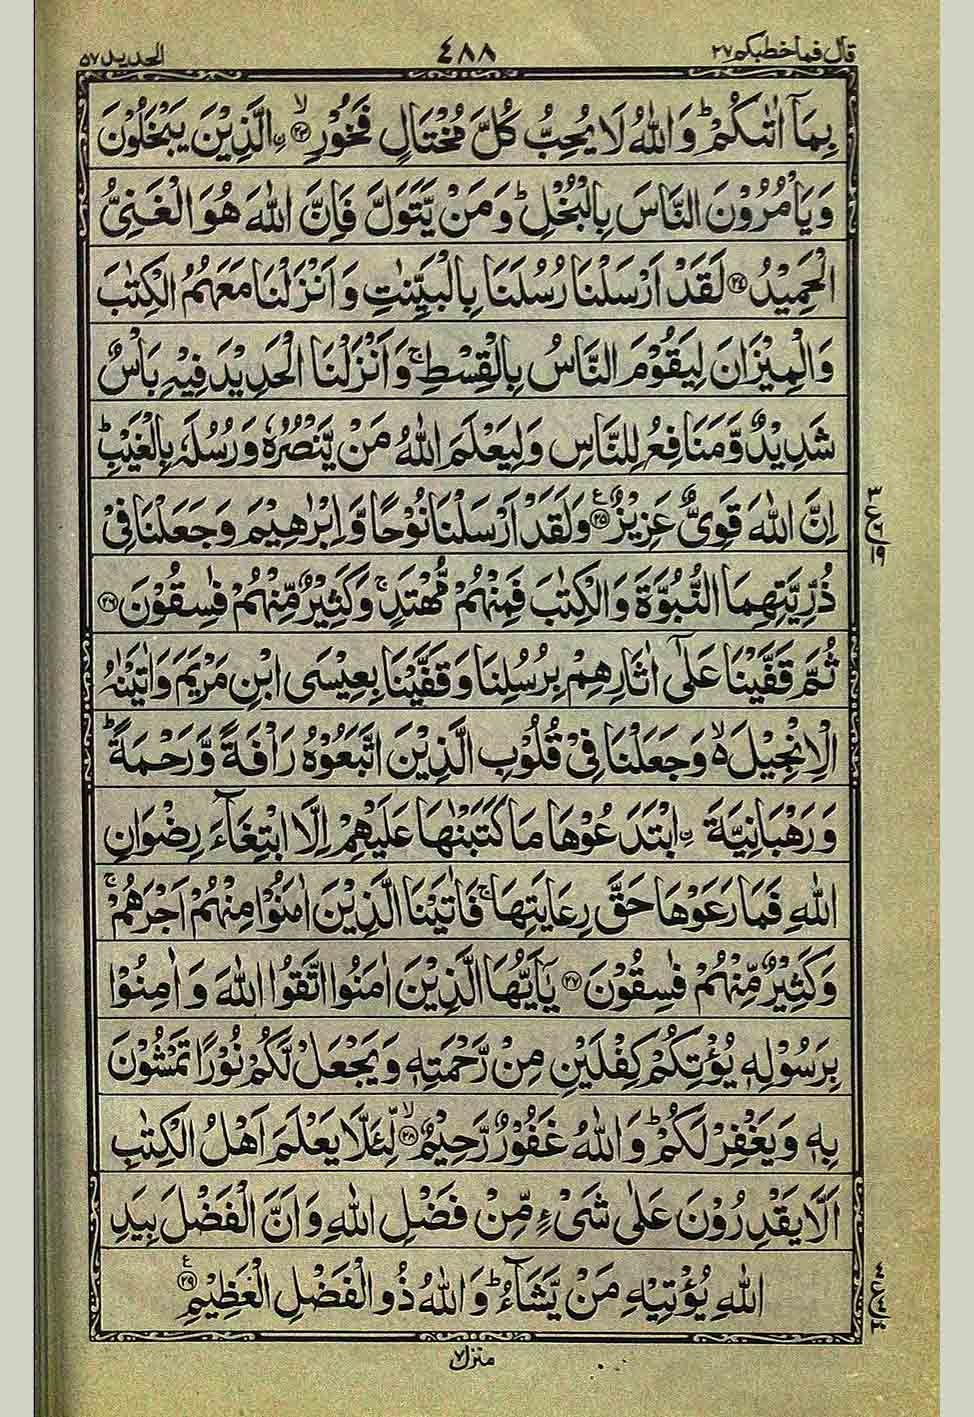 قال فما خطبكم ٢٧ ٤٨٨ الحديد ٥٧
بِمَاۤ اٰتٰىكُمْ ؕ وَ اللّٰهُ لَا یُحِبُّ كُلَّ مُخْتَالٍ فَخُوْرِ ۙ﴿٢٣﴾ ِ۟الَّذِیْنَ یَبْخَلُوْنَ
وَ یَاْمُرُوْنَ النَّاسَ بِالْبُخْلِ ؕ وَ مَنْ یَّتَوَلَّ فَاِنَّ اللّٰهَ هُوَ الْغَنِیُّ
الْحَمِیْدُ ﴿٢٤﴾ لَقَدْ اَرْسَلْنَا رُسُلَنَا بِالْبَیِّنٰتِ وَ اَنْزَلْنَا مَعَهُمُ الْكِتٰبَ
وَ الْمِیْزَانَ لِیَقُوْمَ النَّاسُ بِالْقِسْطِ ۚ وَ اَنْزَلْنَا الْحَدِیْدَ فِیْهِ بَاْسٌ
شَدِیْدٌ وَّ مَنَافِعُ لِلنَّاسِ وَ لِیَعْلَمَ اللّٰهُ مَنْ یَّنْصُرُهٗ وَ رُسُلَهٗ بِالْغَیْبِ ؕ
اِنَّ اللّٰهَ قَوِیٌّ عَزِیْزٌ ﴿٢٥﴾ ع وَ لَقَدْ اَرْسَلْنَا نُوْحًا وَّ اِبْرٰهِیْمَ وَ جَعَلْنَا فِیْ
ذُرِّیَّتِهِمَا النُّبُوَّةَ وَ الْكِتٰبَ فَمِنْهُمْ مُّهْتَدٍ ۚ وَ كَثِیْرٌ مِّنْهُمْ فٰسِقُوْنَ ﴿٢٦﴾
ثُمَّ قَفَّیْنَا عَلٰۤی اٰثَارِهِمْ بِرُسُلِنَا وَ قَفَّیْنَا بِعِیْسَی ابْنِ مَرْیَمَ وَ اٰتَیْنٰهُ
الْاِنْجِیْلَ ۙ۬ وَ جَعَلْنَا فِیْ قُلُوْبِ الَّذِیْنَ اتَّبَعُوْهُ رَاْفَةً وَّ رَحْمَةً ؕ
وَ رَهْبَانِیَّةَ ِ۟ابْتَدَعُوْهَا مَا كَتَبْنٰهَا عَلَیْهِمْ اِلَّا ابْتِغَآءَ رِضْوَانِ
اللّٰهِ فَمَا رَعَوْهَا حَقَّ رِعَایَتِهَا ۚ فَاٰتَیْنَا الَّذِیْنَ اٰمَنُوْا مِنْهُمْ اَجْرَهُمْ ۚ
وَ كَثِیْرٌ مِّنْهُمْ فٰسِقُوْنَ ﴿٢٧﴾ یٰۤاَیُّهَا الَّذِیْنَ اٰمَنُوا اتَّقُوا اللّٰهَ وَ اٰمِنُوْا
بِرَسُوْلِهٖ یُؤْتِكُمْ كِفْلَیْنِ مِنْ رَّحْمَتِهٖ وَ یَجْعَلْ لَّكُمْ نُوْرًا تَمْشُوْنَ
بِهٖ وَ یَغْفِرْ لَكُمْ ؕ وَ اللّٰهُ غَفُوْرٌ رَّحِیْمٌ ۙ﴿٢٨﴾ لِّئَلَّا یَعْلَمَ اَهْلُ الْكِتٰبِ
اَلَّا یَقْدِرُوْنَ عَلٰی شَیْءٍ مِّنْ فَضْلِ اللّٰهِ وَ اَنَّ الْفَضْلَ بِیَدِ
اللّٰهِ یُؤْتِیْهِ مَنْ یَّشَآءُ ؕ وَ اللّٰهُ ذُو الْفَضْلِ الْعَظِیْمِ ﴿٢٩﴾ ع
منزل ٧